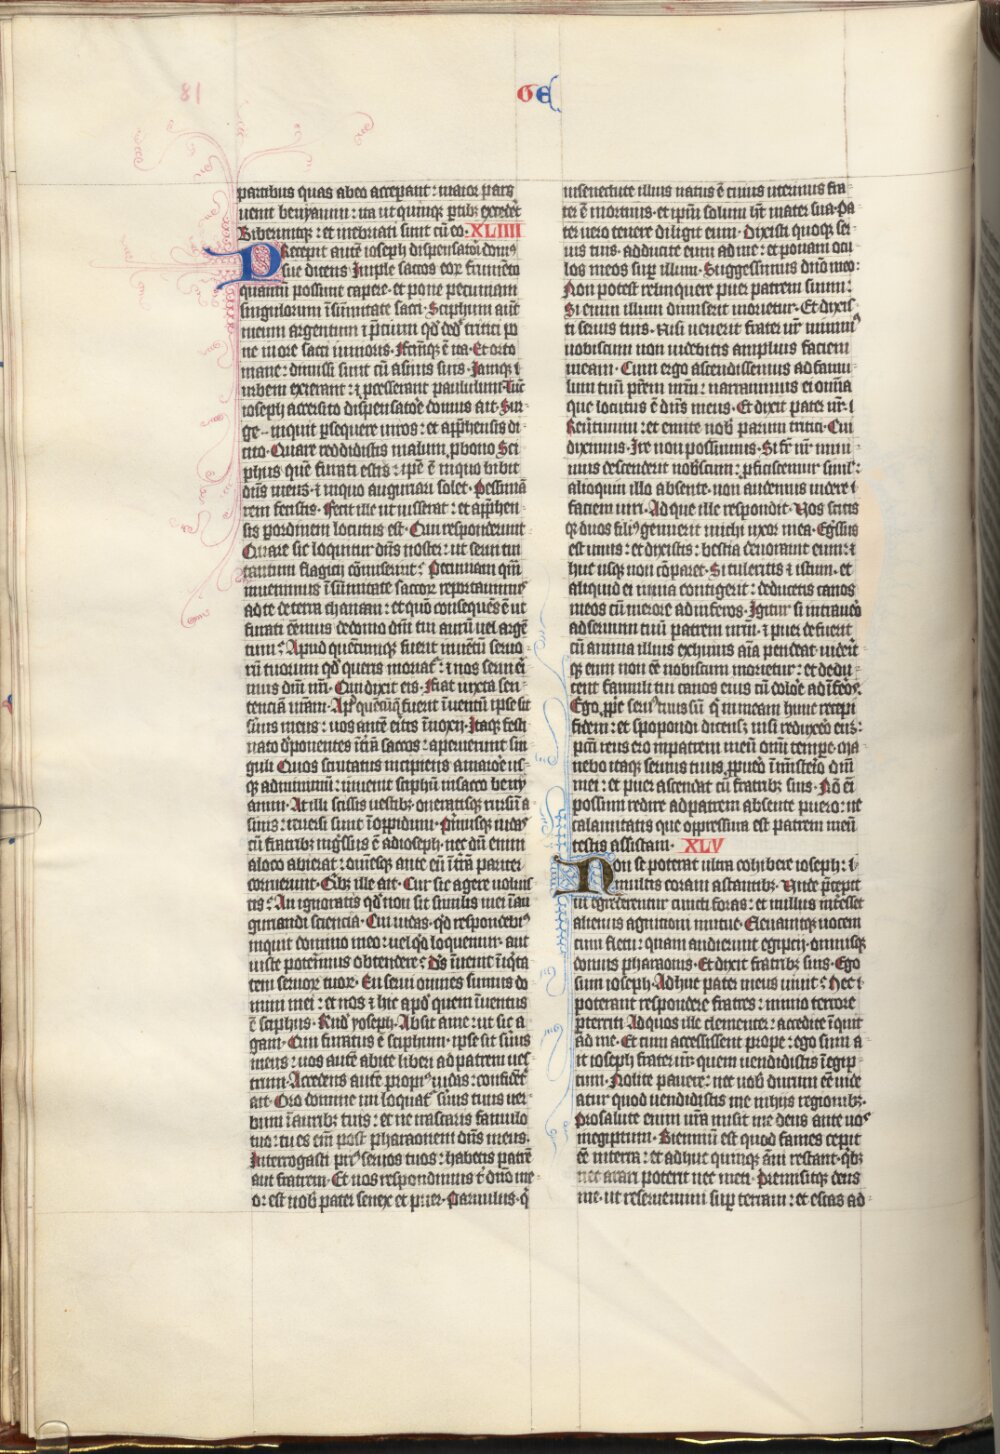 81
GE
partibus quas abeo accepāt: maior pars
uenit benyamin: ita ut quinqꝫ ptibꝫ excedēt
Biberuntqꝫ: et inebriati sunt cū eo. XLIIII
Precepit autē ioseph dispensatori domꝰ
sue dicens Imple saccos eoꝝ frumēto
quantū possunt capere. et pone pecuniam
singulorum ī sūmitate sacci. Sciphum autē
meum argenteum ⁊ p̄cium qd̄ ded̄ tritici po
ne in ore sacci iunioris. Fc̄mqꝫ ē ita. Et orto
mane: dimissi sunt cū asinis suis. Iamqꝫ ī
urbem exierant: ⁊ ꝓcesserant paululum. Tūc
ioseph accersito dispensatoē domus ait. Sur
ge inquit ꝑsequere uiros: et app̄hensis di
cito. Quare reddidistis malum ꝓ bono Sci
phus quē furati estis: ipē ē in quo bibit
dn̄s meus. ⁊ in quo augurari solet. Pessimā
rem fecistis. Fecit ille ut iusserat: et app̄hen
sis ꝑ ordinem locutus est. Qui responderunt
Quare sic loquitur dn̄s noster: ut serui tui
tantum flagicij cōmiserint? Pecuniam quā
inuenimus ī sūmitate saccoꝝ reportauimꝰ
ad te de terra chanaan: et quō consequēs ē ut
furati eēmus de domo dn̄i tui aurū uel argē
tum? Apud quēcumqꝫ fuerit inuētū seruo
rū tuorum qd̄ queris moriat᷑: ⁊ nos serui eri
mus dn̄i nr̄i. Qui dixit eis. Fiat iuxta sen
tenciā urām. Ap̄ quēcūqꝫ fuerit īuentū ipse sit
seruus meus: uos autē eritis īnoxij. Itaqꝫ festi
nato deponentes ī terrā saccos: aperuerunt sin
guli Quos scrutatus incipiens a maiore us
qꝫ ad minimū: inuenit sciphū in sacco beny
amin. At illi scissis uestibꝫ: oneratisqꝫ rursū a
sinis: reuersi sunt ī oppidum. Primusqꝫ iudas
cū fratribꝫ ingressus ē ad ioseph. nec dū enim
a loco abierat: omēsqꝫ ante eū ī t̄rā pariter
corruerunt. Quibꝫ ille ait. Cur sic agere uoluis
tis? An ignoratis qd̄ non sit similis mei ī au
gurandi sciencia. Cui iudas. qd̄ respondebimꝰ
inquit domino meo: uel qd̄ loquemur. aut
iuste poterimus obtendere? Ds̄ īuenit īiq̄ta
tem seruoꝝ tuoꝝ. En serui omnes sumus do
mini mei: et nos ⁊ hic apd̄ quem īuentus
ē sciphus. Rn̄d yoseph. Absit a me: ut sic a
gam. Qui furatus ē sciphum. ipse sit suus
meus: uos autē abite liberi ad patrem ues
trum. Accedens autē propiꝰ iudas: confidēt᷑
ait. Oro domine mi loquat᷑ suus tuus uer
bum ī auribꝫ tuis: et ne irascaris famulo
tuo: tu es em̄ post pharaonem dn̄s meus.
Interrogasti prius seruos tuos: habetis patrē
aut fratrem. Et nos respondimus t᷑ dn̄o me
o: est nob̄ pater senex et puer. Paruulus. q̄
in senectute illius natus ē cuius uterinus fra
ter ē mortuus. et ipm̄ solum ht̄ mater sua. Pa
ter uero tenere diligit eum. Dixisti quoqꝫ ser
uis tuis. adducite eum ad me: et ponam ocu
los meos sup̱ illum. Suggessimus dn̄o meo:
Non potest relinquere puer patrem suum:
Si enim illum dimiserit morietur. Et dixis
ti seruis tuis. nisi uenerit frater ur̄ minimꝰ
uobiscum non uidebitis amplius faciem
meam. Cum ergo ascendissemus ad famu
lum tuū pr̄em nr̄m: narrauimus ei omīa
que locutus ē dn̄s meus. Et dixit pater nr̄. i
Reūtimini: et emite nob̄ parum tritici. Cui
diximus. Ire non possumus. Si fr̄ nr̄ mini
mus descenderit nobiscum: ꝓficiscemur simul:
alioquin illo absente. non audemus uidere
faciem uiri. Ad que ille respondit. Vos scitis
qꝫ duos filios genuerit michi uxor mea. Egressus
est unus: et dixistis: bestia deuorauit eum: ⁊
huc usqꝫ non cōparet. Si tuleritis ⁊ istum. et
aliquid ei in uia contigerit: deducetis canos
meos cū merore ad inferos. Igitur si intrauero
ad seruum tuū patrem nr̄m. ⁊ puer defuerit
cū anima illius ex huius aīa pendeat. uiderit
qꝫ eum non eē nobiscum morietur: et dedu
cent famuli tui canos eius cū dolore ad īferos.
Ego ꝓprie seruus tuus sū qui in meam hunc recepi
fidem: et spopondi dicens. nisi reduxero eum:
pccī reus ero in patrem meū omī tempe. ma
nebo itaqꝫ seruus tuus ꝓ puero ī m̄isterio dn̄i
mei: et puer ascendat cū fratribꝫ suis. Nō em̄
possum redire ad patrem absente puero: ne
calamitatis que oppressura est patrem meū
testis assistam. XLV
Non se poterat ultra cohibere ioseph:
multis coram astantibꝫ. Vnde p̄cepit
ut egrederentur cuncti foras: et nullus int̄esset
alienus agnitioni mutue. Eleuauitqꝫ uocem
cum fletu: quam audierunt egiptij. omnisqꝫ
domus pharaonis. Et dixit fratribꝫ suis. Ego
sum ioseph. Adhuc pater meus uiuit? Nec
poterant respondere fratres: nimio terrore
ꝑterriti Ad quos ille clementer: accedite īquit
ad me. Et cum accessissent prope: ego sum a
it ioseph frater ur̄: quem uendidistis ī egip
tum. Nolite pauere: nec uob̄ durum eē uide
atur quod uendidistis me in hijs regionibꝫ.
Pro salute enim urā misit me deus ante uos
in egiptum. Biennium est quod fames cepit
eē in terra: et adhuc quinqꝫ āni restant. qibꝫ
nec arari poterit nec meti. Premisitqꝫ deus
me. ut reseruemini sup̱ terram: et escas ad